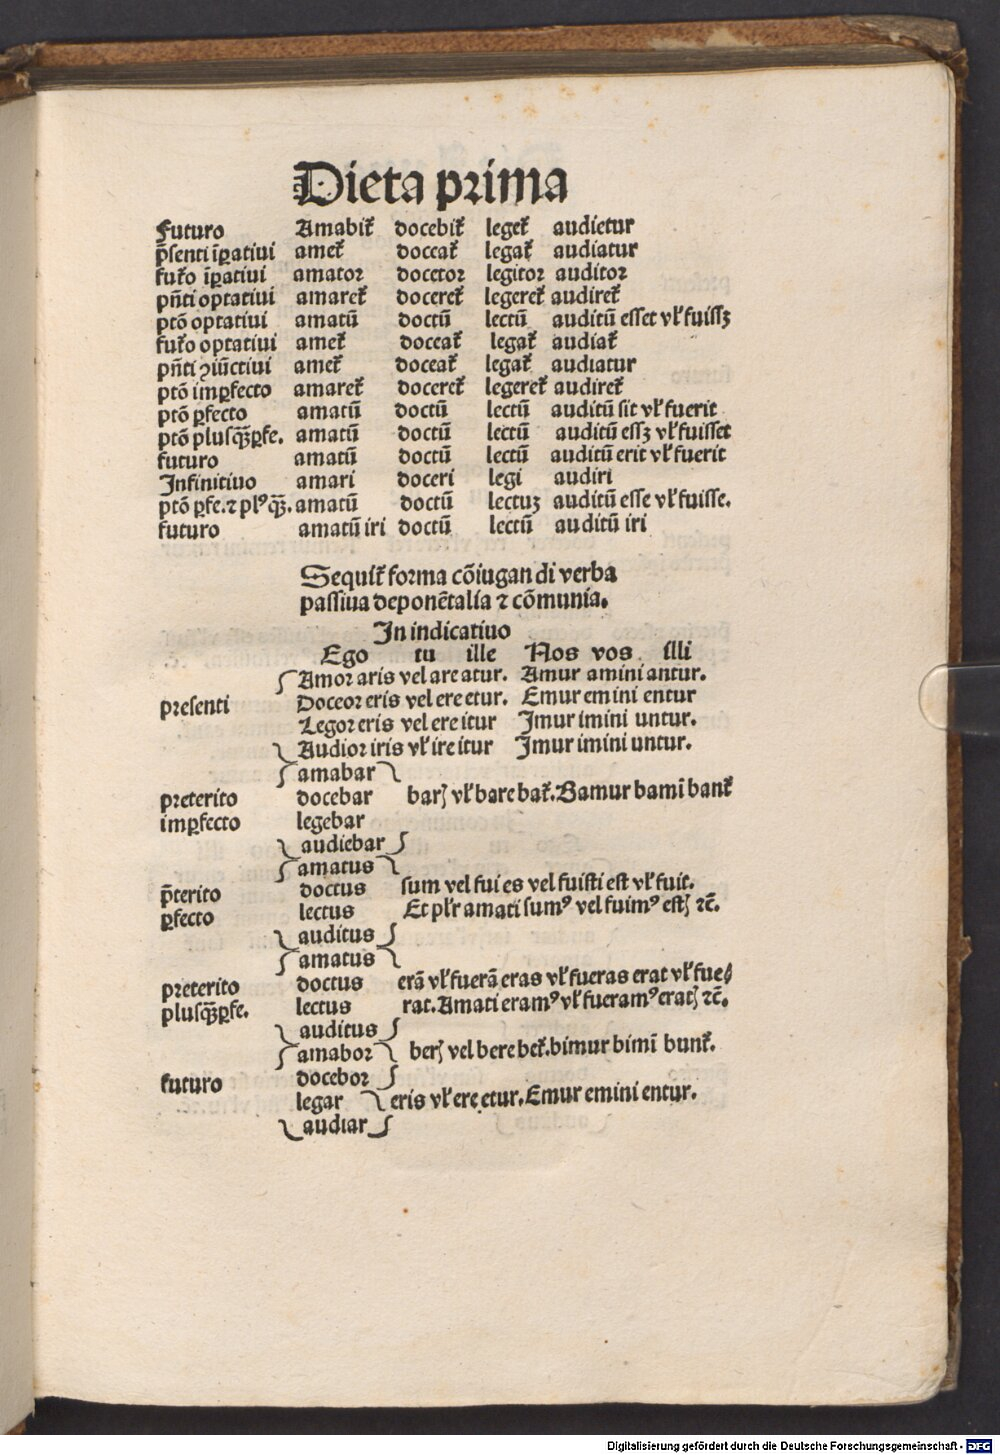 Dieta prima
Futuro Amabit᷑ docebit᷑ leget᷑ audietur
p̄senti īꝑatiui amet᷑ doceat᷑ legat᷑ audiatur
futo᷑ īꝑatiui amator docetor legitor auditor
pn̄ti optatiui amaret᷑ doceret᷑ legeret᷑ audiret᷑
ptō optatiui amatū doctū lectū auditū esset vl᷑ fuissꝫ
futo᷑ optatiui amet᷑ doceat᷑ legat᷑ audiat᷑
pn̄ti ꝯiūctiui amet᷑ doceat᷑ legat᷑ audiatur
ptō imꝑfecto amaret᷑ doceret᷑ legeret᷑ audiret᷑
ptō ꝑfecto amatū doctū lectū auditū sit vl᷑ fuerit
ptō plusqꝫ̄ꝑfe. amatū doctū lectū auditū essꝫ vl᷑ fuisset
futuro amatū doctū lectū auditū erit vl᷑ fuerit
Infinitiuo amari doceri legi audiri
ptō ꝑfe. ⁊ plꝰqꝫ̄. amatū doctū lectuꝫ auditū esse vl᷑ fuisse.
futuro amatū iri doctū lectū auditū iri
Sequit᷑ forma cōiugandi verba
passiua deponētalia ⁊ cōmunia.
In indicatiuo
Ego tu ille Nos vos illi
Amor aris vel are atur. Amur amini antur.
presenti Doceor eris vel ere etur. Emur emini entur
Legor eris vel ere itur Imur imini untur.
Audior iris vl᷑ ire itur Imur imini untur.
amabar
preterito docebar barꝭ vl᷑ bare bat᷑. Bamur bamī bant᷑
imꝑfecto legebar
audiebar
amatus
p̄terito doctus sum vel fui es vel fuisti est vl᷑ fuit.
ꝑfecto lectus Et pl᷑r amati sumꝰ vel fuimꝰ estꝭ ⁊c̄.
auditus
amatus
preterito doctus erā vl᷑ fuerā eras vl᷑ fueras erat vl᷑ fue⸗
plusqꝫ̄ꝑfe. lectus rat. Amati eramꝰ vl᷑ fueramꝰ eratꝭ ⁊c̄.
auditus
amabor berꝭ vel bere bet᷑. bimur bimī bunt᷑.
futuro docebor
legar eris vl᷑ ere etur. Emur emini entur.
audiar
Digitalisierung gefördert durch die Deutsche Forschungsgemeinschaft - DFG